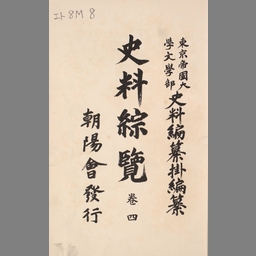 東京帝國大
學文學部
史料編纂掛編纂
史料綜覽
卷四
朝陽會發行